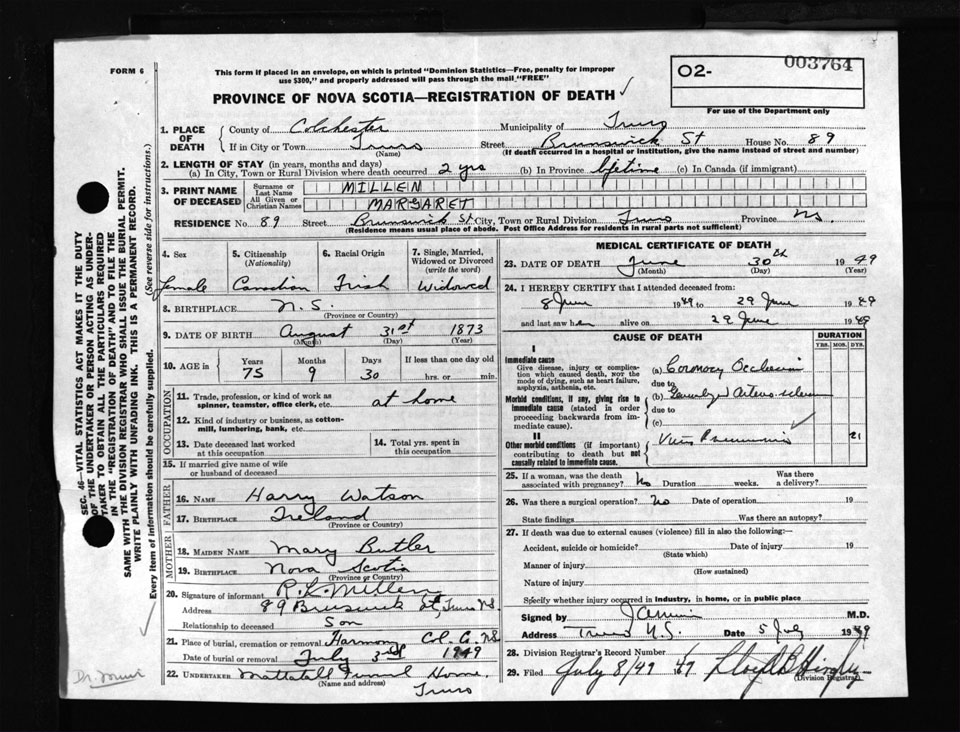 FORM 6
This form if placed in an envelope, on which is printed "Dominion Statistics—Free, penalty for improper
use $300," and properly addressed will pass through the mail "FREE"
PROVINCE OF NOVA SCOTIA—REGISTRATION OF DEATH
O2- 003764
For use of the Department only
1. PLACE OF DEATH
County of Colchester Municipality of Truro
If in City or Town Truro Street Brunswick St House No. 89
(Name) (If death occurred in a hospital or institution, give the name instead of street and number)
2. LENGTH OF STAY (in years, months and days)
(a) In City, Town or Rural Division where death occurred 2 yrs (b) In Province lifetime (c) In Canada (if immigrant)
3. PRINT NAME OF DECEASED
Surname or Last Name MILLEN
All Given or Christian Names MARGARET
RESIDENCE No. 89 Street Brunswick St. City, Town or Rural Division Truro Province N.S.
(Residence means usual place of abode. Post Office Address for residents in rural parts not sufficient)
4. Sex female
5. Citizenship (Nationality) Canadian
6. Racial Origin Irish
7. Single, Married, Widowed or Divorced (write the word) Widowed
8. BIRTHPLACE N.S.
(Province or Country)
9. DATE OF BIRTH August 31st 1873
(Month) (Day) (Year)
10. AGE in Years 75 Months 9 Days 30 If less than one day old
hrs. or min.
OCCUPATION
11. Trade, profession, or kind of work as
spinner, teamster, office clerk, etc. at home
12. Kind of industry or business, as cotton-
mill, lumbering, bank, etc.
13. Date deceased last worked
at this occupation
14. Total yrs. spent in
this occupation
15. If married give name of wife
or husband of deceased
FATHER
16. NAME Harry Watson
17. BIRTHPLACE Ireland
(Province or Country)
MOTHER
18. MAIDEN NAME Mary Butler
19. BIRTHPLACE Nova Scotia
(Province or Country)
20. Signature of informant R. L. Millen
Address 89 Bruswick St, Truro N.S.
Relationship to deceased Son
21. Place of burial, cremation or removal Harmony Col. C. N.S.
Date of burial or removal July 3rd 1949
22. UNDERTAKER Mattatall Funeral Home,
(Name and address) Truro
MEDICAL CERTIFICATE OF DEATH
23. DATE OF DEATH June 30th 1949
(Month) (Day) (Year)
24. I HEREBY CERTIFY that I attended deceased from:
8 June 1949 to 29 June 1949
and last saw her alive on 29 June 1949
CAUSE OF DEATH
DURATION
YRS. MOS. DYS.
I
Immediate cause
Give disease, injury or complica-
tion which caused death, NOT the
mode of dying, such as heart failure,
asphyxia, asthenia, etc.
(a) Coronary Occlusion
due to
Morbid conditions, if any, giving rise to
immediate cause (stated in order
proceeding backwards from im-
mediate cause).
(b) Arterio-sclerosis
due to
(c)
II
Other morbid conditions (if important)
contributing to death but not
causally related to immediate cause.
Virus Pneumonia 21
25. If a woman, was the death
associated with pregnancy? No Duration weeks. Was there
a delivery?
26. Was there a surgical operation? No Date of operation 19
State findings Was there an autopsy?
27. If death was due to external causes (violence) fill in also the following:
Accident, suicide or homicide? Date of injury 19
(State which)
Manner of injury
(How sustained)
Nature of injury
Specify whether injury occurred in industry, in home, or in public place
Signed by M.D.
Address Truro N.S. Date 5 July 1949
28. Division Registrar's Record Number
29. Filed July 8/49 49
(Division Registrar)
SEC. 46—VITAL STATISTICS ACT MAKES IT THE DUTY
OF THE UNDERTAKER OR PERSON ACTING AS UNDER-
TAKER TO OBTAIN ALL THE PARTICULARS REQUIRED
IN THE "REGISTRATION OF DEATH" AND TO FILE THE
SAME WITH THE DIVISION REGISTRAR WHO SHALL ISSUE THE BURIAL PERMIT.
WRITE PLAINLY WITH UNFADING INK. THIS IS A PERMANENT RECORD.
Every item of information should be carefully supplied. (See reverse side for instructions.)